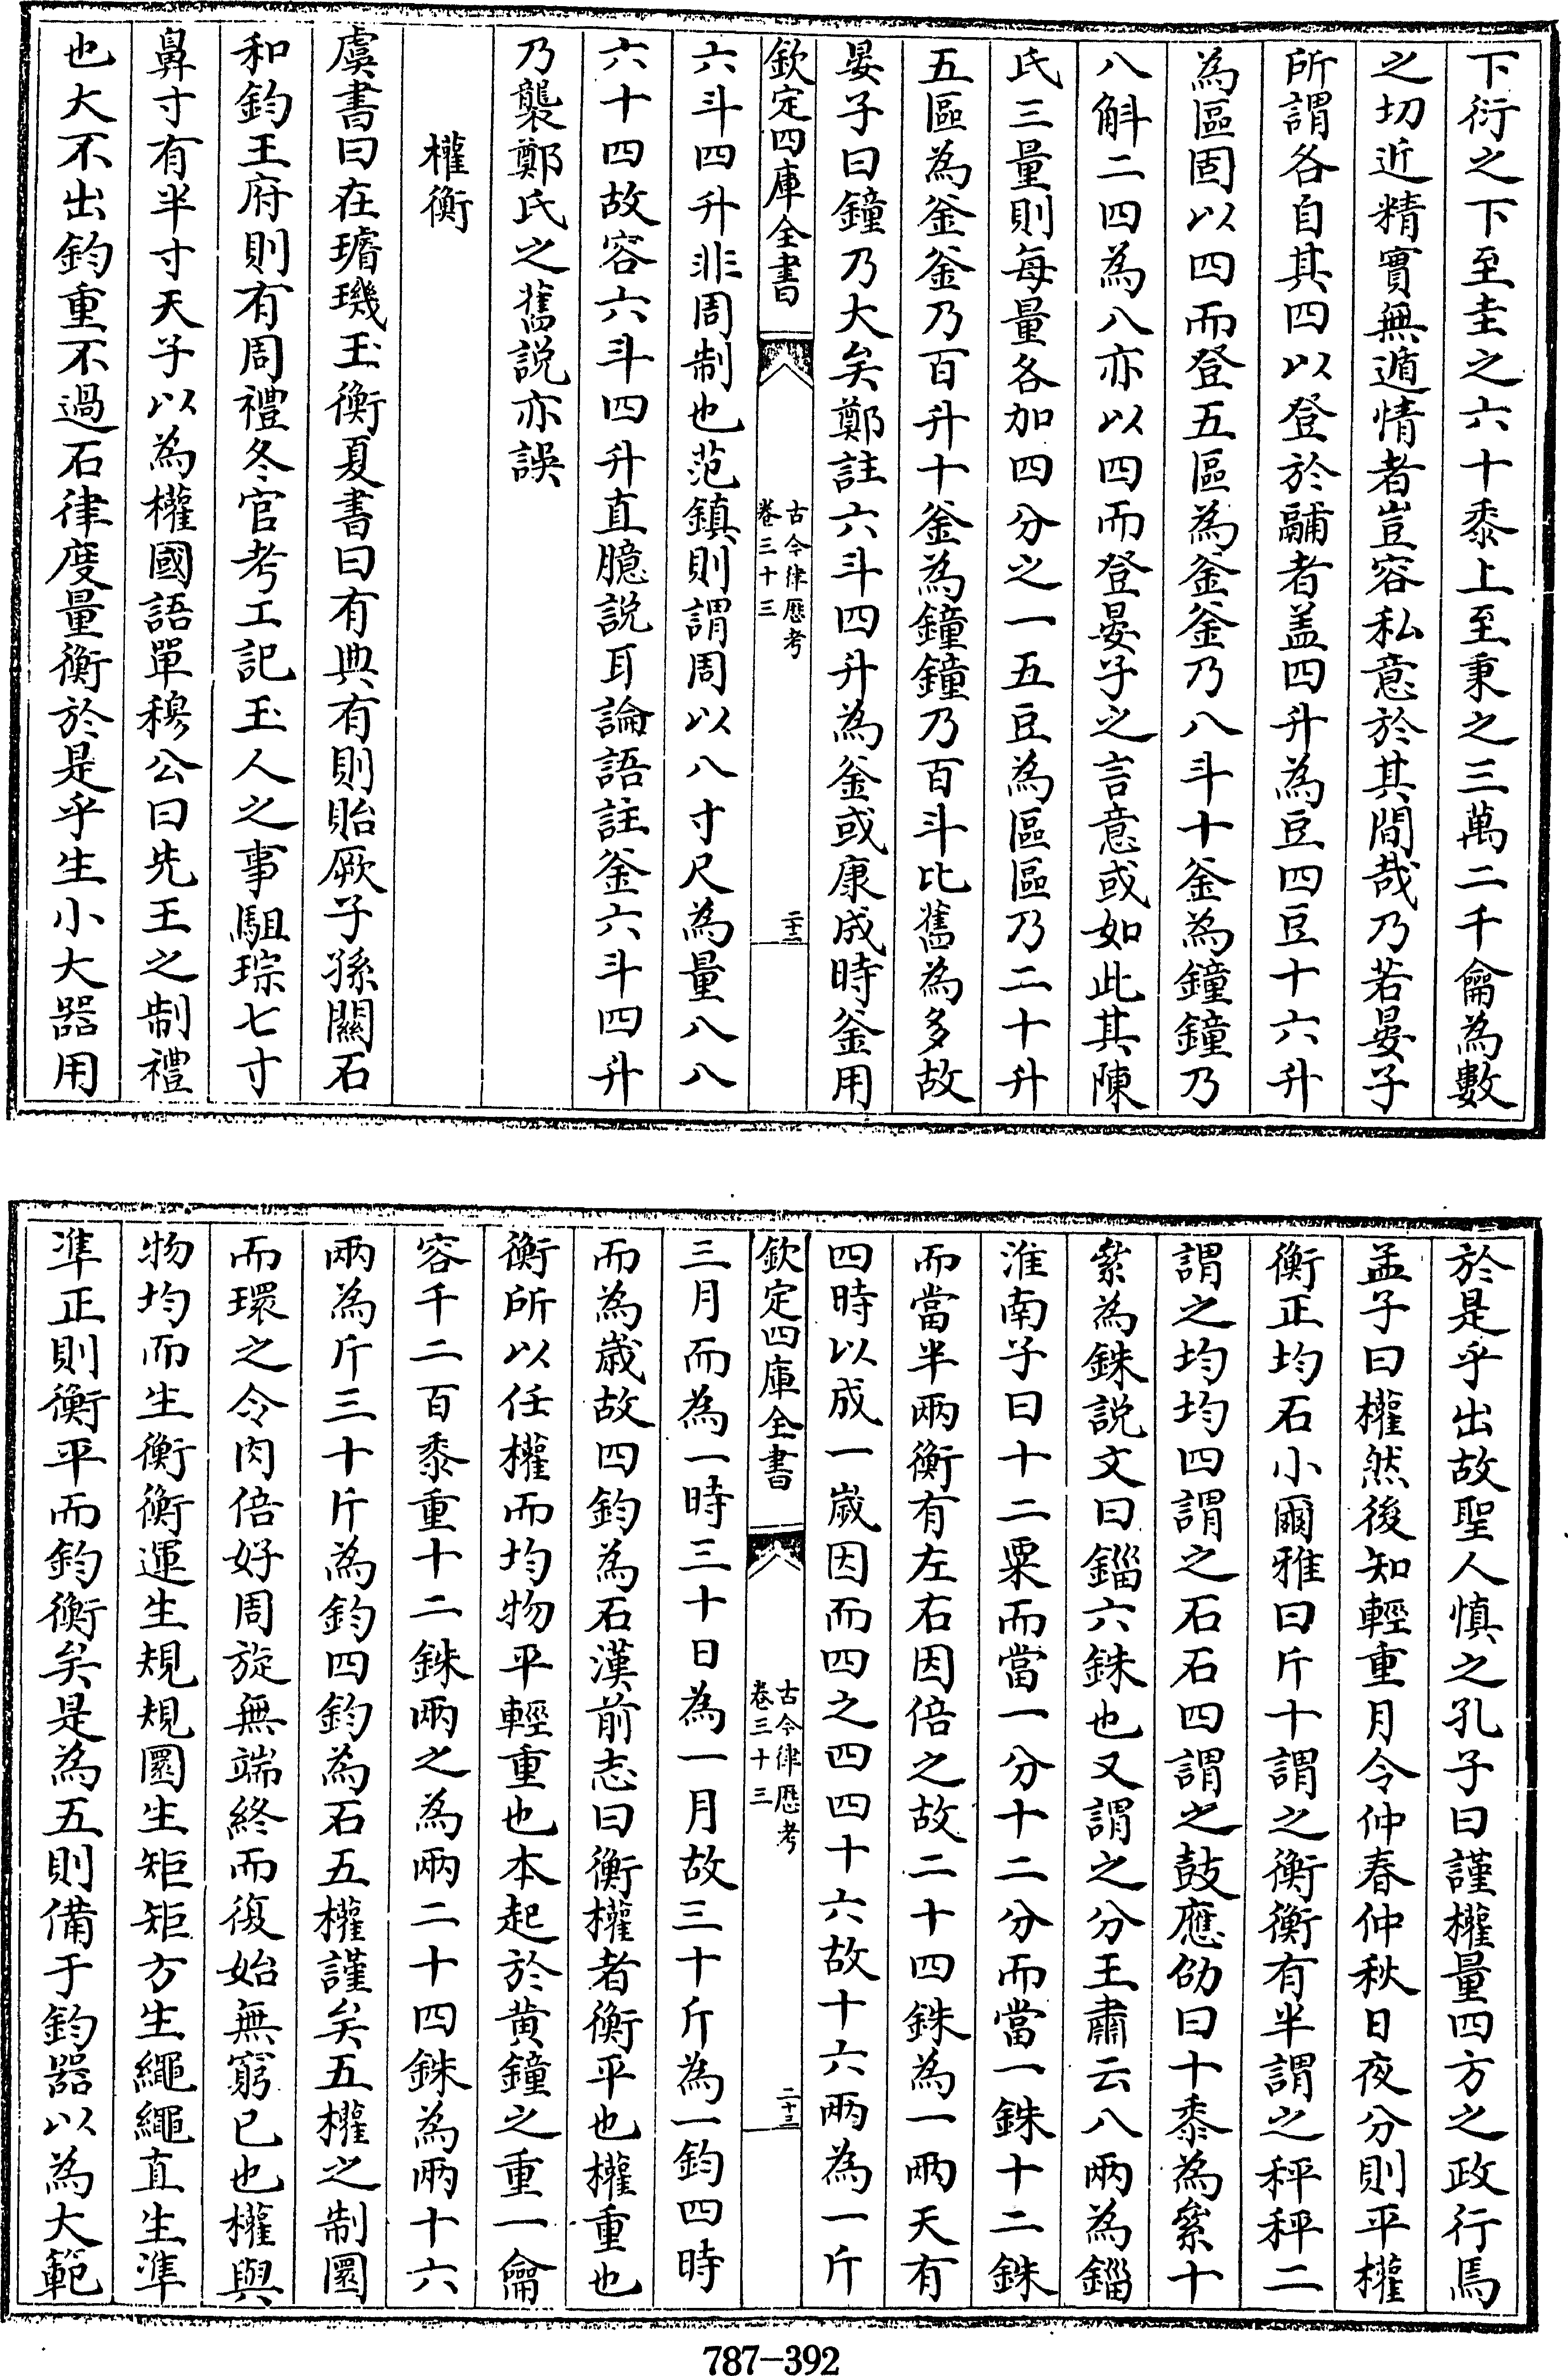 下衍之下至圭之六十黍上至秉之三萬二千龠為數
之切近精實無遁情者豈容私意於其間哉乃若晏子
所謂各自其四以登於鬴者盖四升為豆四豆十六升
為區固以四而登五區為釜釜乃八斗十釜為鐘鐘乃
八斛二四為八亦以四而登晏子之言意或如此其陳
氏三量則每量各加四分之一五豆為區區乃二十升
五區為釜釜乃百升十釜為鐘鐘乃百斗比舊為多故
晏子曰鐘乃大矣鄭註六斗四升為釜或康成時釜用
欽定四庫全書
古今律歷考
卷三十三
二十二
六斗四升非周制也范鎮則謂周以八寸尺為量八八
六十四故容六斗四升直臆說耳論語註釜六斗四升
乃襲鄭氏之舊說亦誤
權衡
虞書曰在璿璣玉衡夏書曰有典有則貽厥子孫關石
和鈞王府則有周禮冬官考工記玉人之事駔琮七寸
鼻寸有半寸天子以為權國語單穆公曰先王之制禮
也大不出鈞重不過石律度量衡於是乎生小大器用
於是乎出故聖人慎之孔子曰謹權量四方之政行焉
孟子曰權然後知輕重月令仲春仲秋日夜分則平權
衡正均石小爾雅曰斤十謂之衡衡有半謂之秤秤二
謂之均均四謂之石石四謂之鼓應劭曰十黍為絫十
絫為銖說文曰錙六銖也又謂之分王肅云八兩為錙
淮南子曰十二粟而當一分十二分而當一銖十二銖
而當半兩衡有左右因倍之故二十四銖為一兩天有
四時以成一歲因而四之四四十六故十六兩為一斤
欽定四庫全書
古今律歷考
卷三十三
二十三
三月而為一時三十日為一月故三十斤為一鈞四時
而為歲故四鈞為石漢前志曰衡權者衡平也權重也
衡所以任權而均物平輕重也本起於黃鐘之重一龠
容千二百黍重十二銖兩之為兩二十四銖為兩十六
兩為斤三十斤為鈞四鈞為石五權謹矣五權之制圜
而環之令肉倍好周旋無端終而復始無窮已也權與
物均而生衡衡運生規規圜生矩矩方生繩繩直生準
準正則衡平而鈞衡矣是為五則備于鈞器以為大範
787-392